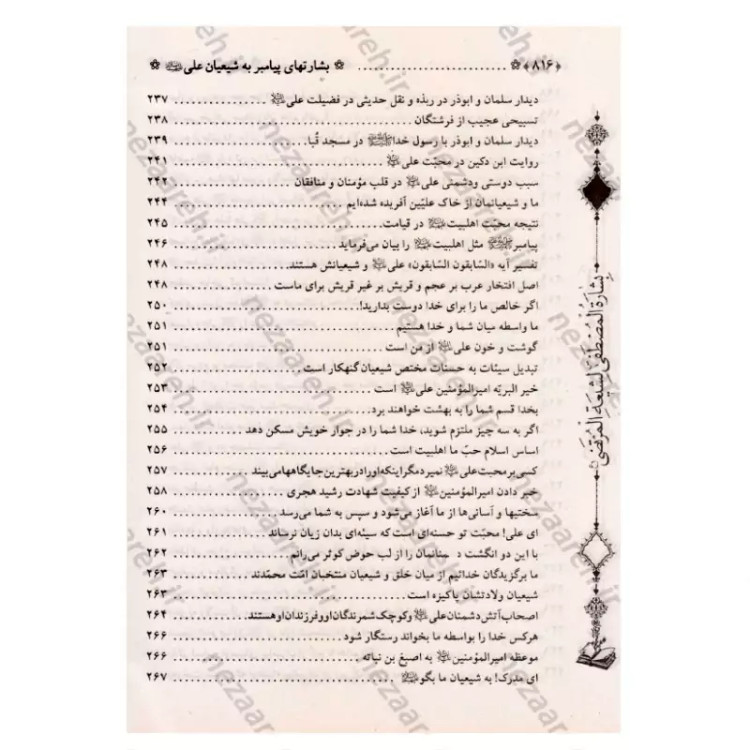 ﴿۸۱۶﴾ ........................ بشارتهای پیامبر به شیعیان علی
دیدار سلمان و ابوذر در ربذه و نقل حدیثی در فضیلت علی ............. ۲۳۷
تسبیحی عجیب از فرشتگان ............. ۲۳۸
دیدار سلمان و ابوذر با رسول خدا در مسجد قُبا ............. ۲۳۹
روایت ابن دکین در محبّت علی ............. ۲۴۱
سبب دوستی ودشمنی علی در قلب مؤمنان و منافقان ............. ۲۴۲
ما و شیعیانمان از خاک علیّین آفریده شده‌ایم ............. ۲۴۴
نتیجه محبّت اهلبیت در قیامت ............. ۲۴۵
پیامبر مثل اهلبیت را بیان می‌فرماید ............. ۲۴۶
تفسیر آیه «السّابقون السّابقون» علی و شیعیانش هستند ............. ۲۴۸
اصل افتخار عرب بر عجم و قریش بر غیر قریش برای ماست ............. ۲۴۸
اگر خالص ما را برای خدا دوست بدارید! ............. ۲۵۰
ما واسطه میان شما و خدا هستیم ............. ۲۵۱
گوشت و خون علی از من است ............. ۲۵۱
تبدیل سیئات به حسنات مختص شیعیان گنهکار است ............. ۲۵۲
خیر البریّه امیرالمؤمنین علی است ............. ۲۵۳
بخدا قسم شما را به بهشت خواهند برد ............. ۲۵۴
اگر به سه چیز ملتزم شوید، خدا شما را در جوار خویش مسکن دهد ............. ۲۵۵
اساس اسلام حبّ ما اهلبیت است ............. ۲۵۶
کسی بر محبت علی نمیرد مگر اینکه او را در بهترین جایگاهها می‌بیند ............. ۲۵۷
خبر دادن امیرالمؤمنین از کیفیت شهادت رشید هجری ............. ۲۵۸
سختیها و آسانی‌ها از ما آغاز می‌شود و سپس به شما می‌رسد ............. ۲۶۰
ای علی! محبّت تو حسنه‌ای است که سیئه‌ای بدان زیان نرساند ............. ۲۶۱
با این دو انگشت دشمنانمان را از لب حوض کوثر می‌رانم ............. ۲۶۲
ما برگزیدگان خدائیم از میان خلق و شیعیان منتخبان امّت محمّدند ............. ۲۶۳
شیعیان ولادتشان پاکیزه است ............. ۲۶۳
اصحاب آتش دشمنان علی و کوچک شمرندگان او و فرزندان او هستند ............. ۲۶۴
هرکس خدا را بواسطه ما بخواند رستگار شود ............. ۲۶۶
موعظه امیرالمؤمنین به اصبغ بن نباته ............. ۲۶۶
ای مدرک! به شیعیان ما بگو ............. ۲۶۷
بشارة المصطفی لشیعة المرتضی
nezaareh.ir